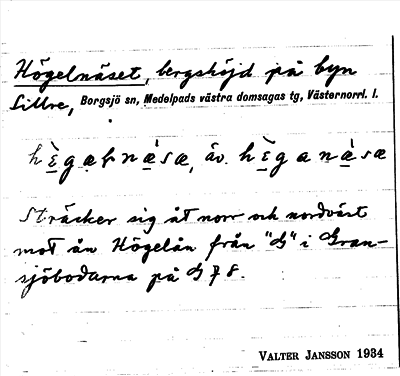 Högelnäset, bergshöjd på byn
Sillre, Borgsjö sn, Medelpads västra domsagas tg, Västernorrl. l.
hègaɫnæ̀sæ, äv. hèganæ̀sæ
Sträcker sig åt norr och nordväst
mot ån Högelån från "G" i Gran-
sjöbodarna på G 78.
VALTER JANSSON 1934